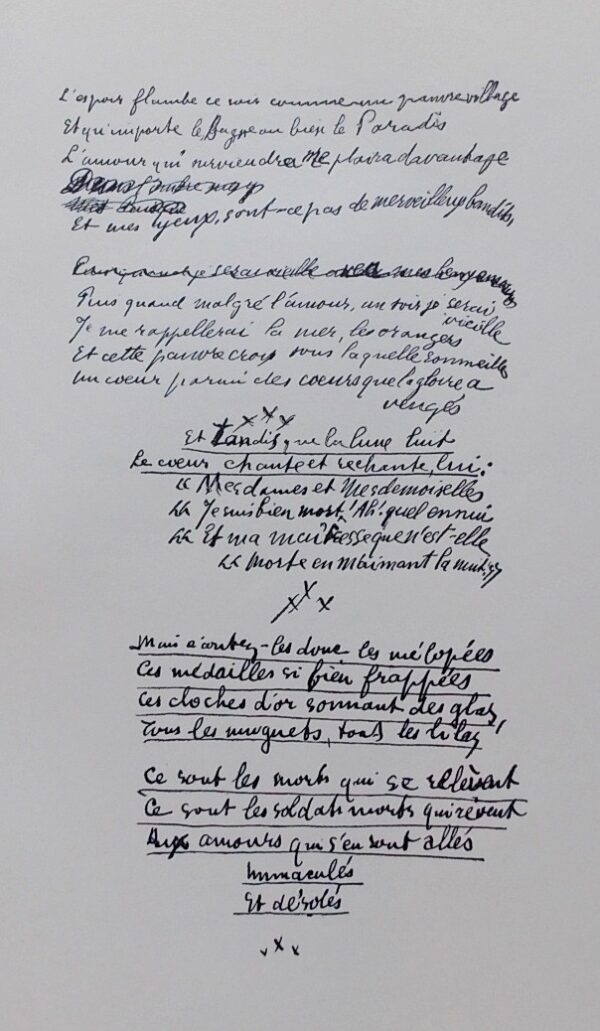 L'espoir flambe ce soir comme un pauvre village
Et qu'importe le Bagne ou bien le Paradis
L'amour qui surviendra me plaira davantage
Et mes yeux, sont-ce pas de merveilleux bandits,
Puis quand malgré l'amour, un soir je serai
vieille
Je me rappellerai la mer, les orangers
Et cette pauvre croix sous laquelle sommeille
un cœur parmi des cœurs que la gloire a
vengés
x x x
Et tandis que la lune luit
Le cœur chante et rechante, lui:
« Mesdames et Mesdemoiselles
« Je suis bien mort! Ah! quel ennui
« Et ma maîtresse que n'est-elle
« Morte en m'aimant la nuit. »
x x x
Mais écoutez-les donc les mélopées
Ces médailles si bien frappées
Ces cloches d'or sonnant des glas,
Tous les muguets, tous les lilas
Ce sont les morts qui se relèvent
Ce sont les soldats morts qui rêvent
Aux amours qui s'en sont allés
Immaculés
Et désolés
x x x